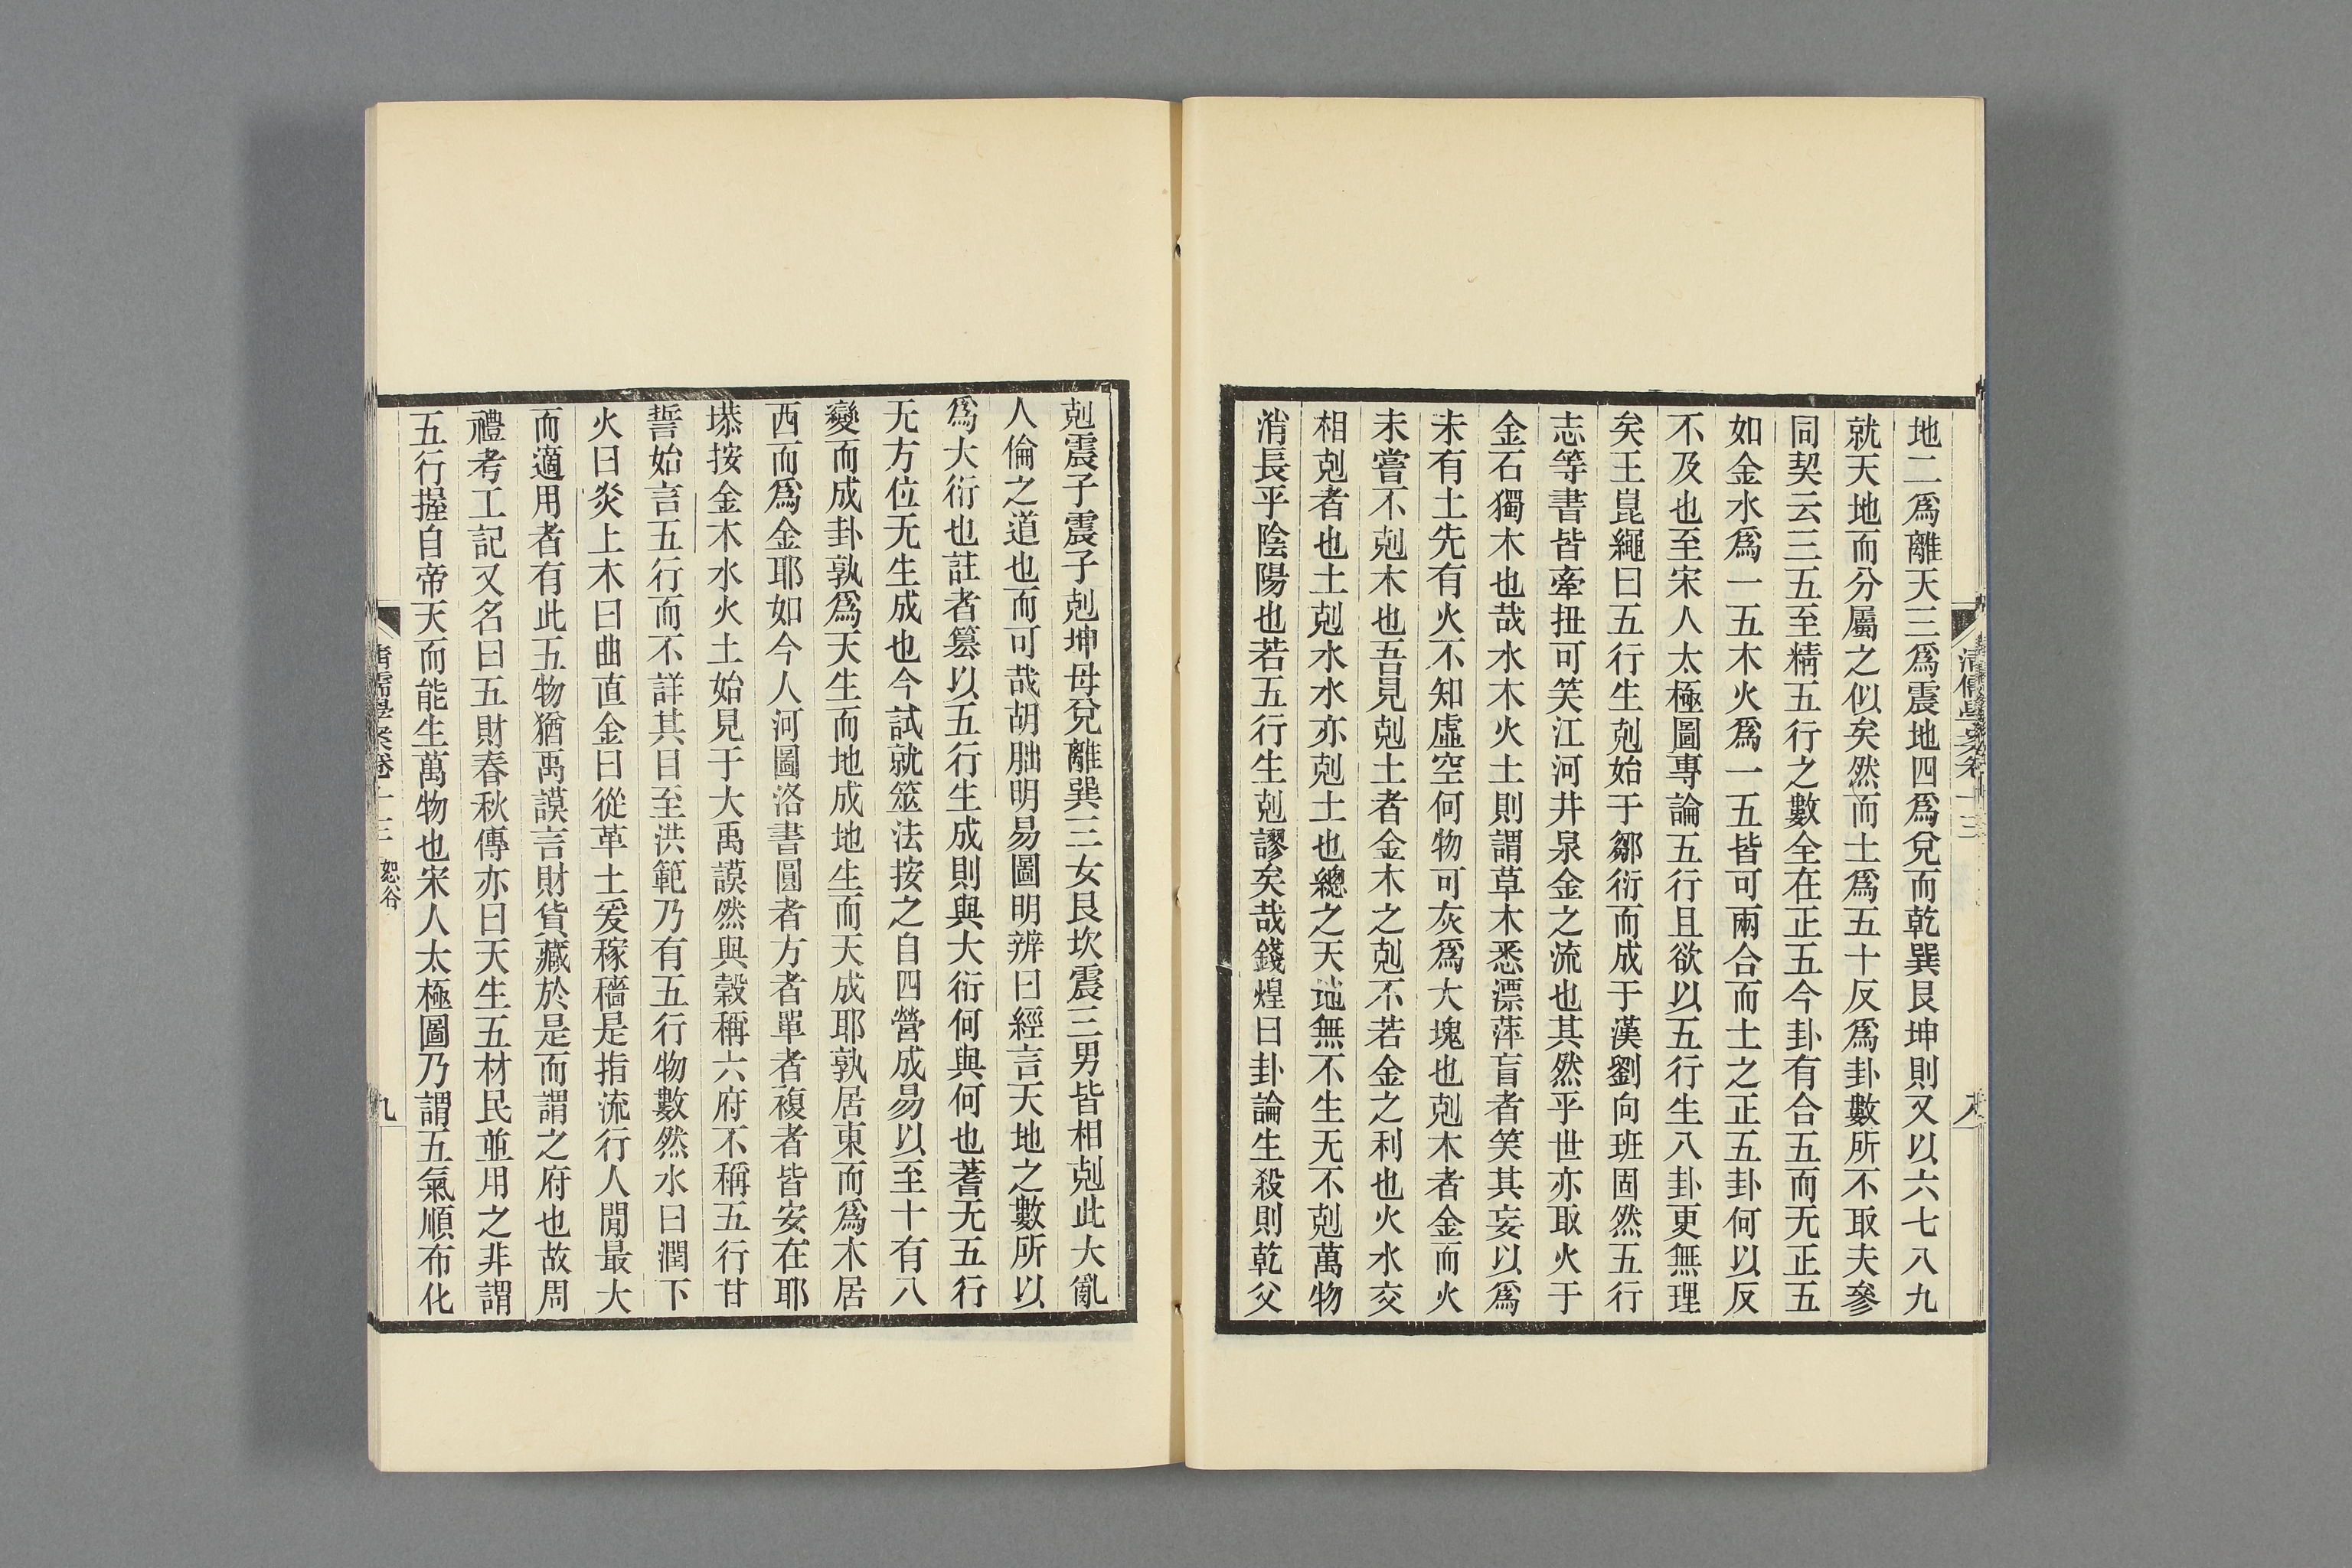 地二爲離天三爲震地四爲兌而乾巽艮坤則又以六七八九
就天地而分屬之似矣然而土爲五十反爲卦數所不取夫參
同契云三五至精五行之數全在正五今卦有合五而无正五
如金水爲一五木火爲一五皆可兩合而土之正五卦何以反
不及也至宋人太極圖專論五行且欲以五行生八卦更無理
矣王崑繩曰五行生剋始于鄒衍而成于漢劉向班固然五行
志等書皆牽扭可笑江河井泉金之流也其然乎世亦取火于
金石獨木也哉水木火土則謂草木悉漂萍盲者笑其妄以爲
未有土先有火不知虛空何物可灰爲大塊也剋木者金而火
未嘗不剋木也吾見剋土者金木之剋不若金之利也火水交
相剋者也土剋水水亦剋土也總之天地無不生无不剋萬物
消長乎陰陽也若五行生剋謬矣哉錢煌曰卦論生殺則乾父
清儒學案卷十三
八
剋震子震子剋坤母兌離巽三女艮坎震三男皆相剋此大亂
人倫之道也而可哉胡朏明易圖明辨曰經言天地之數所以
爲大衍也註者篡以五行生成則與大衍何與何也蓍无五行
无方位无生成也今試就筮法按之自四營成易以至十有八
變而成卦孰爲天生而地成地生而天成耶孰居東而爲木居
西而爲金耶如今人河圖洛書圓者方者單者複者皆安在耶
㙫按金木水火土始見于大禹謨然與榖稱六府不稱五行甘
誓始言五行而不詳其目至洪範乃有五行物數然水曰潤下
火曰炎上木曰曲直金曰從革土爰稼穡是指流行人閒最大
而適用者有此五物猶禹謨言財貨藏於是而謂之府也故周
禮考工記又名曰五財春秋傳亦曰天生五材民並用之非謂
五行握自帝天而能生萬物也宋人太極圖乃謂五氣順布化
清儒學案卷十三 恕谷
九